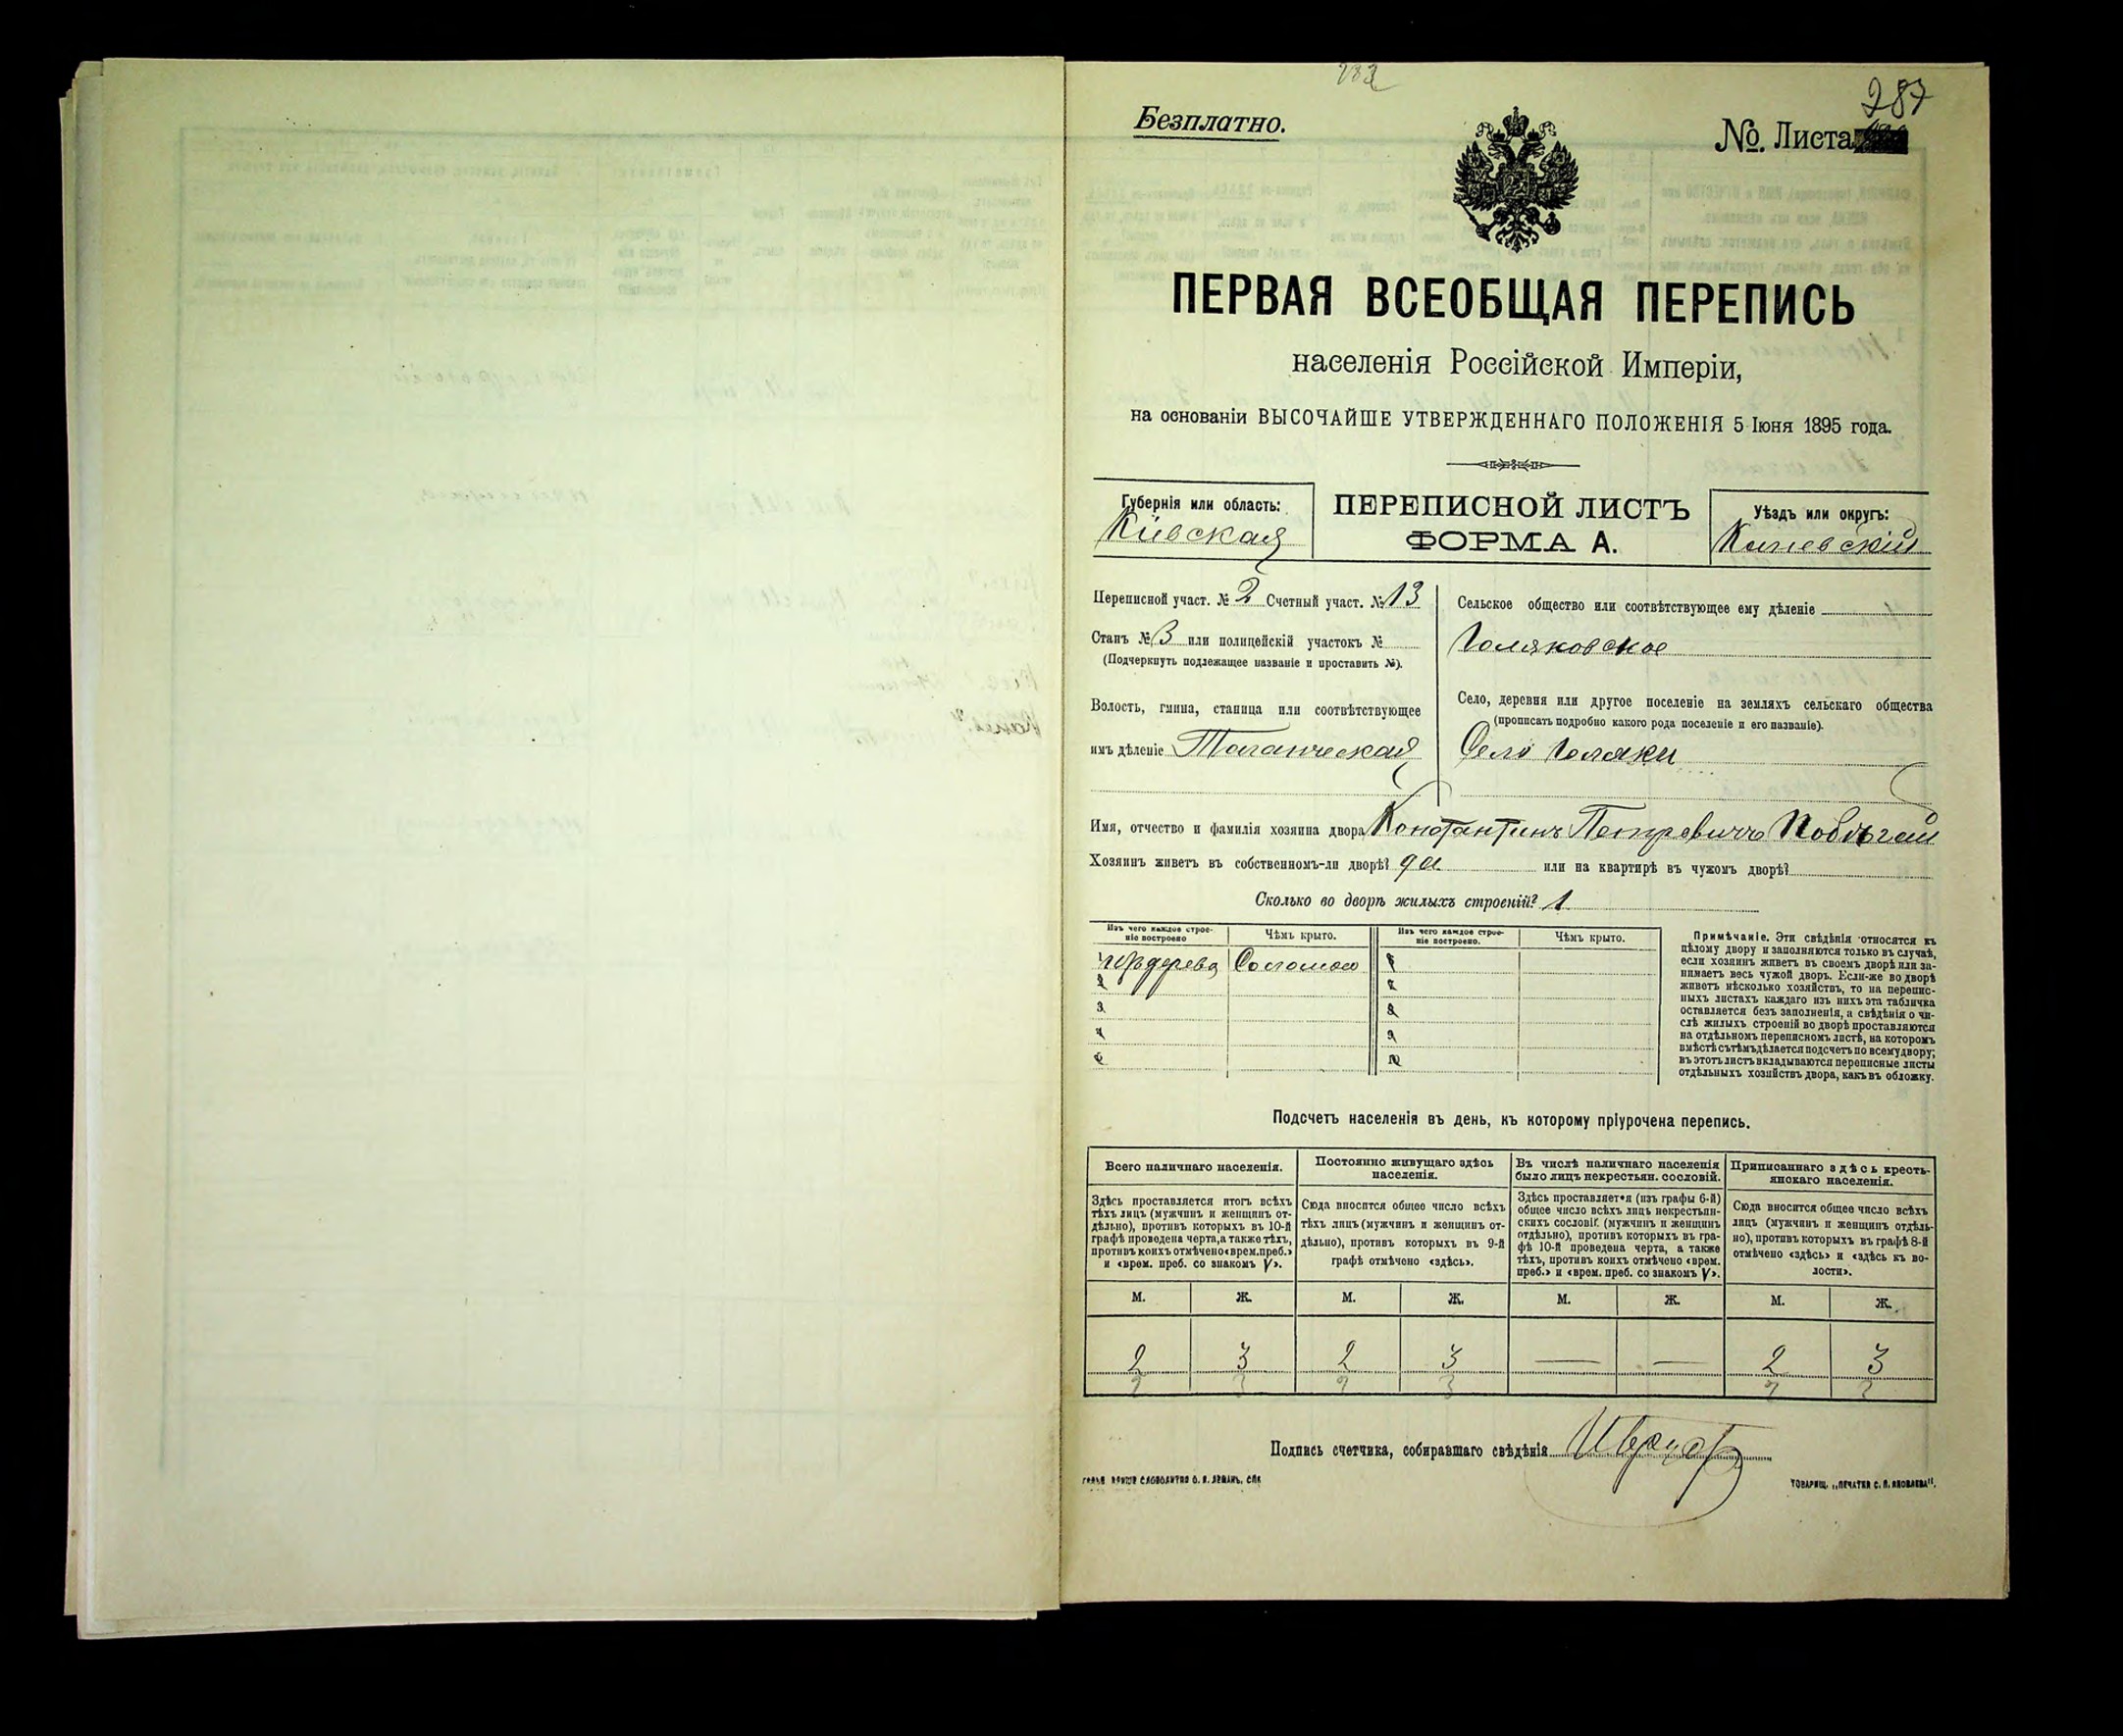 287
Безплатно.
№. Листа
ПЕРВАЯ ВСЕОБЩАЯ ПЕРЕПИСЬ
населенія Россійской Имперіи,
на основаніи ВЫСОЧАЙШЕ УТВЕРЖДЕННАГО ПОЛОЖЕНІЯ 5 Іюня 1895 года.
Губернія или область:
Кіевская
ПЕРЕПИСНОЙ ЛИСТЪ
ФОРМА А.
Уѣздъ или округъ:
Каневскій
Переписной участ. № 2 Счетный участ. № 13
Станъ № 3 или полицейскій участокъ №
(Подчеркнуть подлежащее названіе и проставить №).
Волость, гмина, станица или соотвѣтствующее
имъ дѣленіе Таганческая
Сельское общество или соотвѣтствующее ему дѣленіе
Голяковское
Село, деревня или другое поселеніе на земляхъ сельскаго общества
(прописать подробно какого рода поселеніе и его названіе).
Село Голяки
Имя, отчество и фамилія хозяина двора Константинъ Петровичъ
Хозяинъ живетъ въ собственномъ-ли дворѣ? да или на квартирѣ въ чужомъ дворѣ?
Сколько во дворѣ жилыхъ строеній? 1
Изъ чего каждое строе-
ніе построено
Чѣмъ крыто.
Изъ чего каждое строе-
ніе построено.
Чѣмъ крыто.
дерева Соломою
2
3
4
5
6
7
8
9
10
Примѣчаніе. Эти свѣдѣнія относятся къ
цѣлому двору и заполняются только въ случаѣ,
если хозяинъ живетъ въ своемъ дворѣ или за-
нимаетъ весь чужой дворъ. Если-же во дворѣ
живетъ нѣсколько хозяйствъ, то на перепис-
ныхъ листахъ каждаго изъ нихъ эта табличка
оставляется безъ заполненія, а свѣдѣнія о чи-
слѣ жилыхъ строеній во дворѣ проставляются
на отдѣльномъ переписномъ листѣ, на которомъ
вмѣстѣ съ тѣмъ дѣлается подсчетъ по всему двору;
въ этотъ листъ вкладываются переписные листы
отдѣльныхъ хозяйствъ двора, какъ въ обложку.
Подсчетъ населенія въ день, къ которому пріурочена перепись.
Всего наличнаго населенія.
Здѣсь проставляется итогъ всѣхъ
тѣхъ лицъ (мужчинъ и женщинъ от-
дѣльно), противъ которыхъ въ 10-й
графѣ проведена черта, а также тѣхъ,
противъ коихъ отмѣчено «врем. преб.»
и «врем. преб. со знакомъ V».
Постоянно живущаго здѣсь
населенія.
Сюда вносится общее число всѣхъ
тѣхъ лицъ (мужчинъ и женщинъ от-
дѣльно), противъ которыхъ въ 9-й
графѣ отмѣчено «здѣсь».
Въ числѣ наличнаго населенія
было лицъ некрестьян. сословій.
Здѣсь проставляется (изъ графы 6-й)
общее число всѣхъ лицъ некрестьян-
скихъ сословій (мужчинъ и женщинъ
отдѣльно), противъ которыхъ въ гра-
фѣ 10-й проведена черта, а также
тѣхъ, противъ коихъ отмѣчено «врем.
преб.» и «врем. преб. со знакомъ V».
Приписаннаго здѣсь кресть-
янскаго населенія.
Сюда вносится общее число всѣхъ
лицъ (мужчинъ и женщинъ отдѣль-
но), противъ которыхъ въ графѣ 8-й
отмѣчено «здѣсь» и «здѣсь въ во-
лости».
М. Ж. М. Ж. М. Ж. М. Ж.
2 3 2 3 — — 2 3
Подпись счетчика, собиравшаго свѣдѣнія
ТОВАРИЩ. „ПЕЧАТНЯ С. П. ЯКОВЛЕВА".